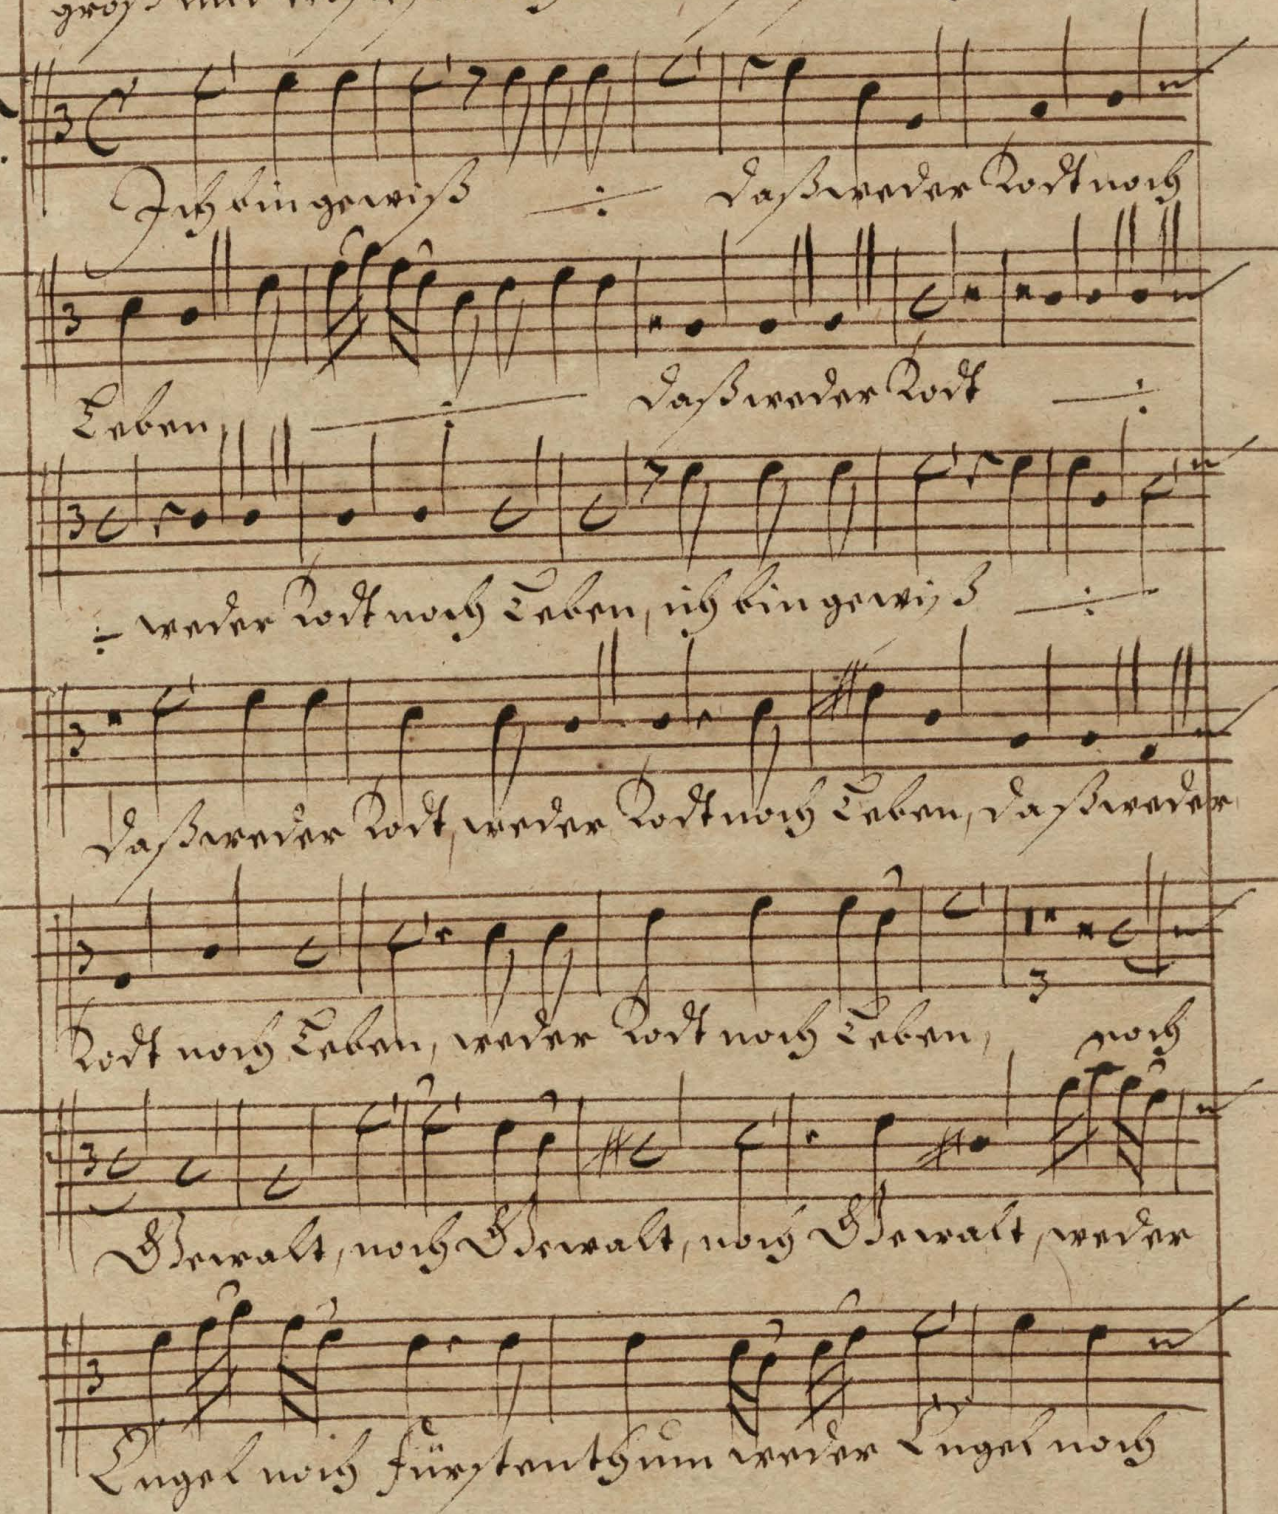 groß und
Ich bin gewiß ÷ daß weder Todt noch
Leben, ÷ daß weder Todt ÷
÷ weder Todt noch Leben, ich bin gewiß ÷
daß weder Todt, weder Todt noch Leben, daß weder
Todt noch Leben, weder Todt noch Leben, noch
3
Gewalt, noch Gewalt, noch Gewalt, weder
Engel noch fürstenthum weder Engel noch